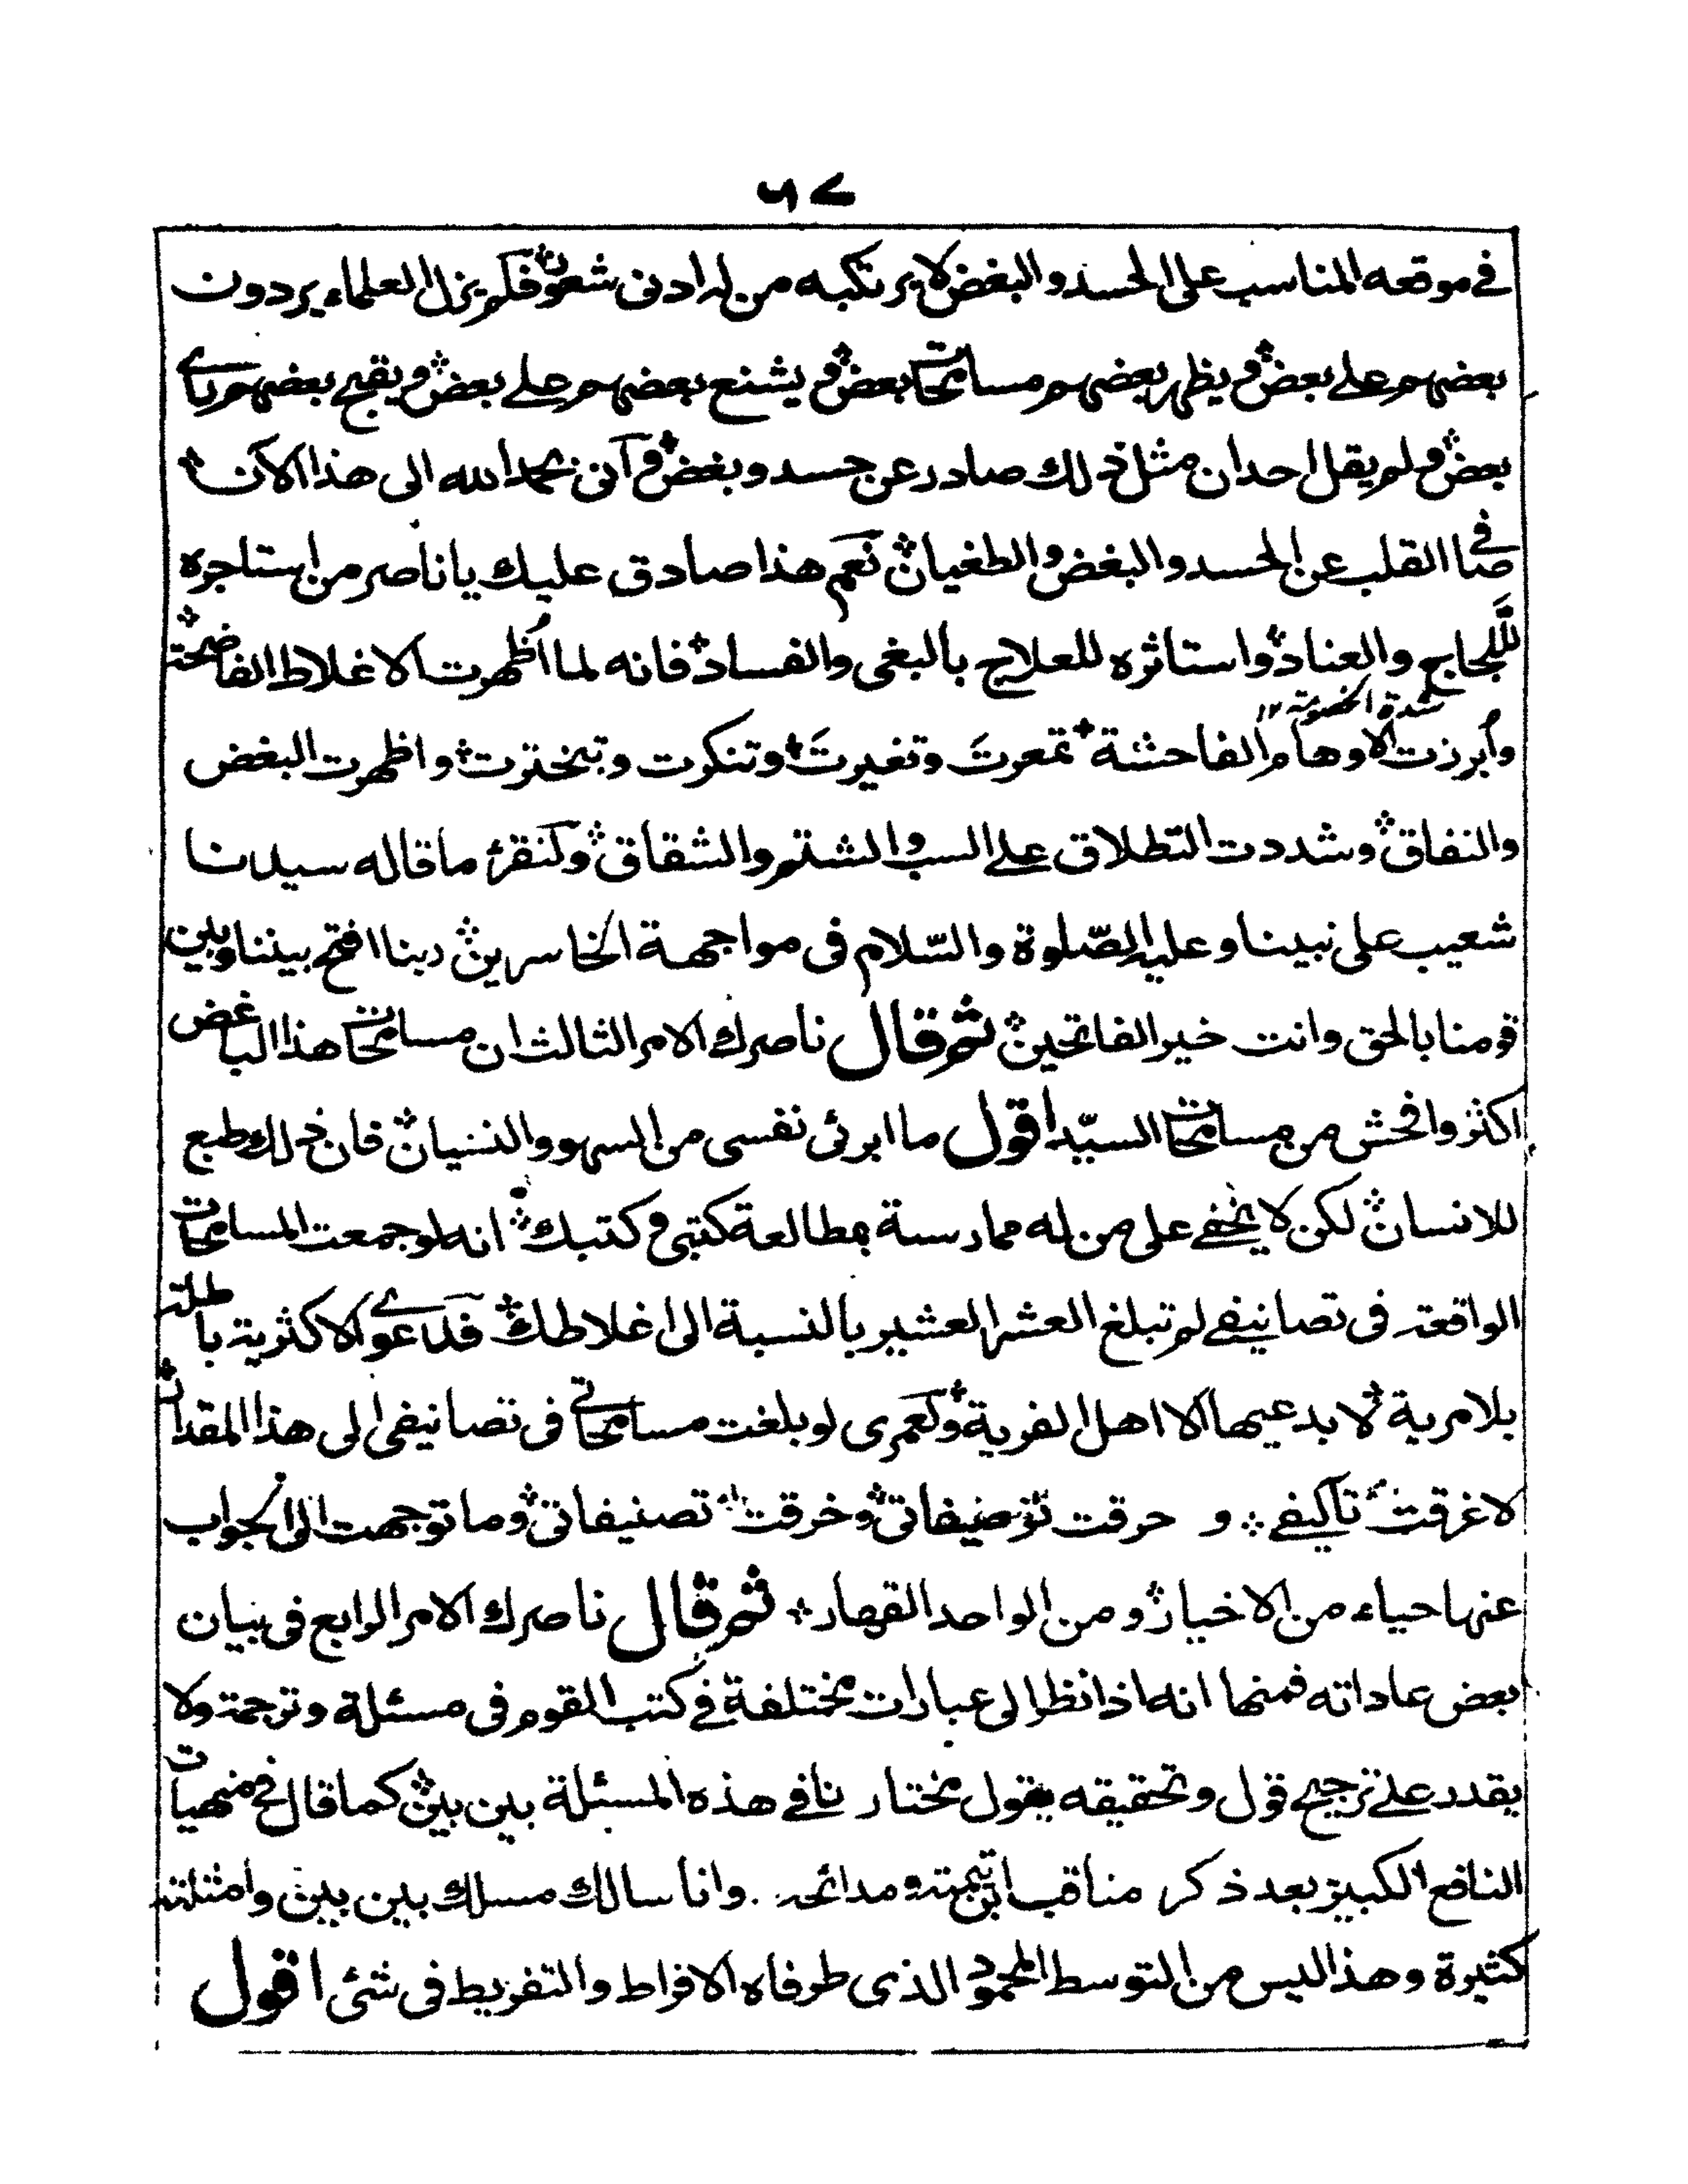 ٥٧
في موقعه المناسب على الحسد والبغض لا يرتكبه من له ادنى شعور فلم يزل العلماء يردون
بعضهم على بعض و يظهر بعضهم مسامحات بعض و يشنع بعضهم على بعض و يقبح بعضهم رأى
بعض و لم يقل احد ان مثل ذلك صادر عن حسد و بغض و انى بحمد الله الى هذا الآن
صافى القلب عن الحسد والبغض والطغيان نعم هذا صادق عليك يا ناصر من استاجره
للّجاج والعناد واستاثره للعلاج بالبغى والفساد فانه لما اُظهرت الاغلاط الفاضحة
شدة الخصومة ١٢
واُبرزت الاوهام الفاحشة تمعرتَ وتغيرتَ وتنكرت وتبخترت واظهرت البغض
والنفاق وشددت التطلاق على السب والشتم والشقاق ولنقرء ما قاله سيدنا
شعيب على نبينا و عليه الصّلوة والسّلام فى مواجهة الخاسرين ربنا افتح بيننا وبين
قومنا بالحق وانت خير الفاتحين ثم قال ناصرك الامر الثالث ان مسامحات هذا الباغض
اكثر وافحش من مسامحات السيّد اقول ما ابرئ نفسى من السهو والنسيان فان ذلك طبع
للانسان لكن لا يخفى على من له ممارسة بمطالعة كتبى و كتبك انه لو جمعت المسامحات
الواقعة فى تصانيفى لم تبلغ العشر العشير بالنسبة الى اغلاطك فدعوى الاكثرية باطلة
بلا مرية لا يدعيها الا اهل الفرية ولعمرى لو بلغت مسامحاتى فى تصانيفى الى هذا المقدار
لاغرقت تآليفى و حرقت ترصيفاتى وخرقت تصنيفاتى وما توجهت الى الجواب
عنها حياء من الاخيار و من الواحد القهار ثم قال ناصرك الامر الرابع فى بيان
بعض عاداته فمنها انه اذا نظر الى عبارات مختلفة فى كتب القوم فى مسئلة و ترجمة ولا
يقدر على ترجيح قول وتحقيقه يقول مختارنا فى هذه المسئلة بين بين كما قال فى منهيات
النافع الكبير بعد ذكر مناقب ابن تيمية و مدائحه . وانا سالك مسلك بين بين وامثلته
كثيرة وهذا ليس من التوسط المحمود الذى طرفاه الافراط والتفريط فى شئ اقول